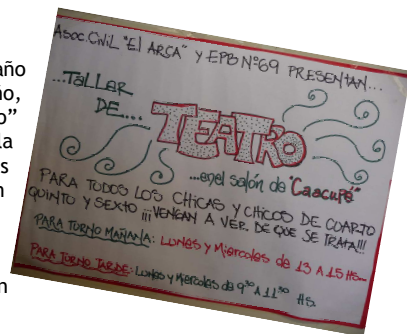 año
no,
o”
la
s
n
n
Asoc. Civil "El Arca" y EPB Nº69 PRESENTAN...
...TALLER
DE....
TEATRO
...en el salón de "Caacupé"
PARA TODOS LOS CHICAS Y CHICOS DE CUARTO
QUINTO Y SEXTO ¡¡¡VENGAN A VER DE QUE SE TRATA!!!
PARA TURNO MAÑANA: LUNES y MIERCOLES de 13 A 15 HS
PARA TURNO TARDE: LUNES y MIERCOLES de 9³⁰ A 11³⁰ HS.